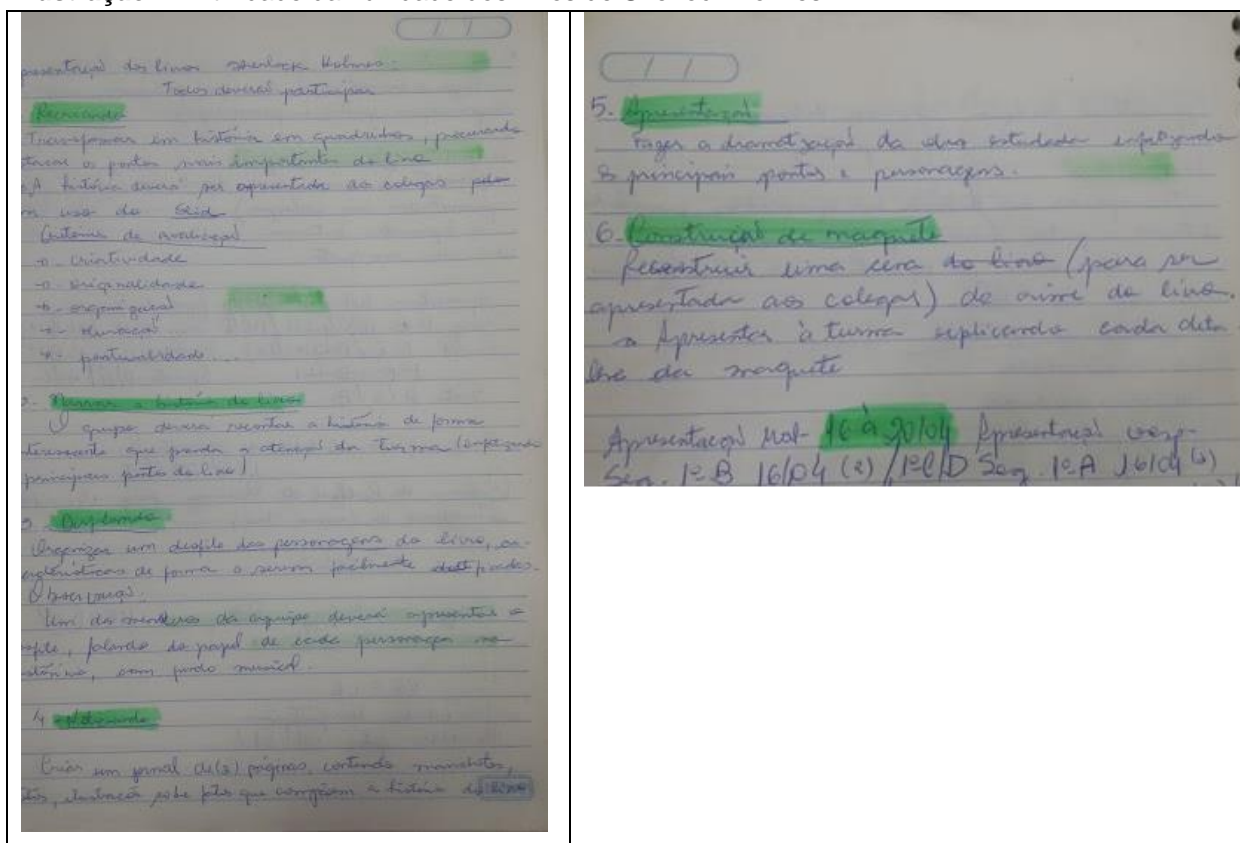 dos livros Sherlock Holmes.
Todos deverão participar
Recriando
Transformar em história em quadrinhos, procurando
os pontos mais importantes do livro
A história deverá ser apresentada aos colegas
uso do Slid
Criterios de avaliação
criatividade
originalidade
organização
duração
pontualidade...
Narrar a história do livro
O grupo deverá recontar a história de forma
que prenda a atenção da turma (enfatizando
principais pontos do livro)
Desfilando
Organizar um desfile dos personagens do livro,
de forma a serem facilmente
Observação.
Um dos membros da equipe deverá apresentar o
falando do papel de cada personagem na
com fundo musical.
4
Criar um jornal de (2) páginas, contendo manchetes,
sobre fatos que compõem a história do livro
5. Apresentação
Fazer a dramatização da obra estudada enfatizando
os principais pontos e personagens.
6- Construção de maquete
Reconstruir uma cena do livro (para ser
apresentada aos colegas) do crime do livro.
Apresentar à turma explicando cada deta
lhe da maquete
Apresentação Mat- 16 à 20/04 Apresentação vesp-
Seg. 1º B 16/04 (2) / 1º C/D Seg. 1º A 16/04